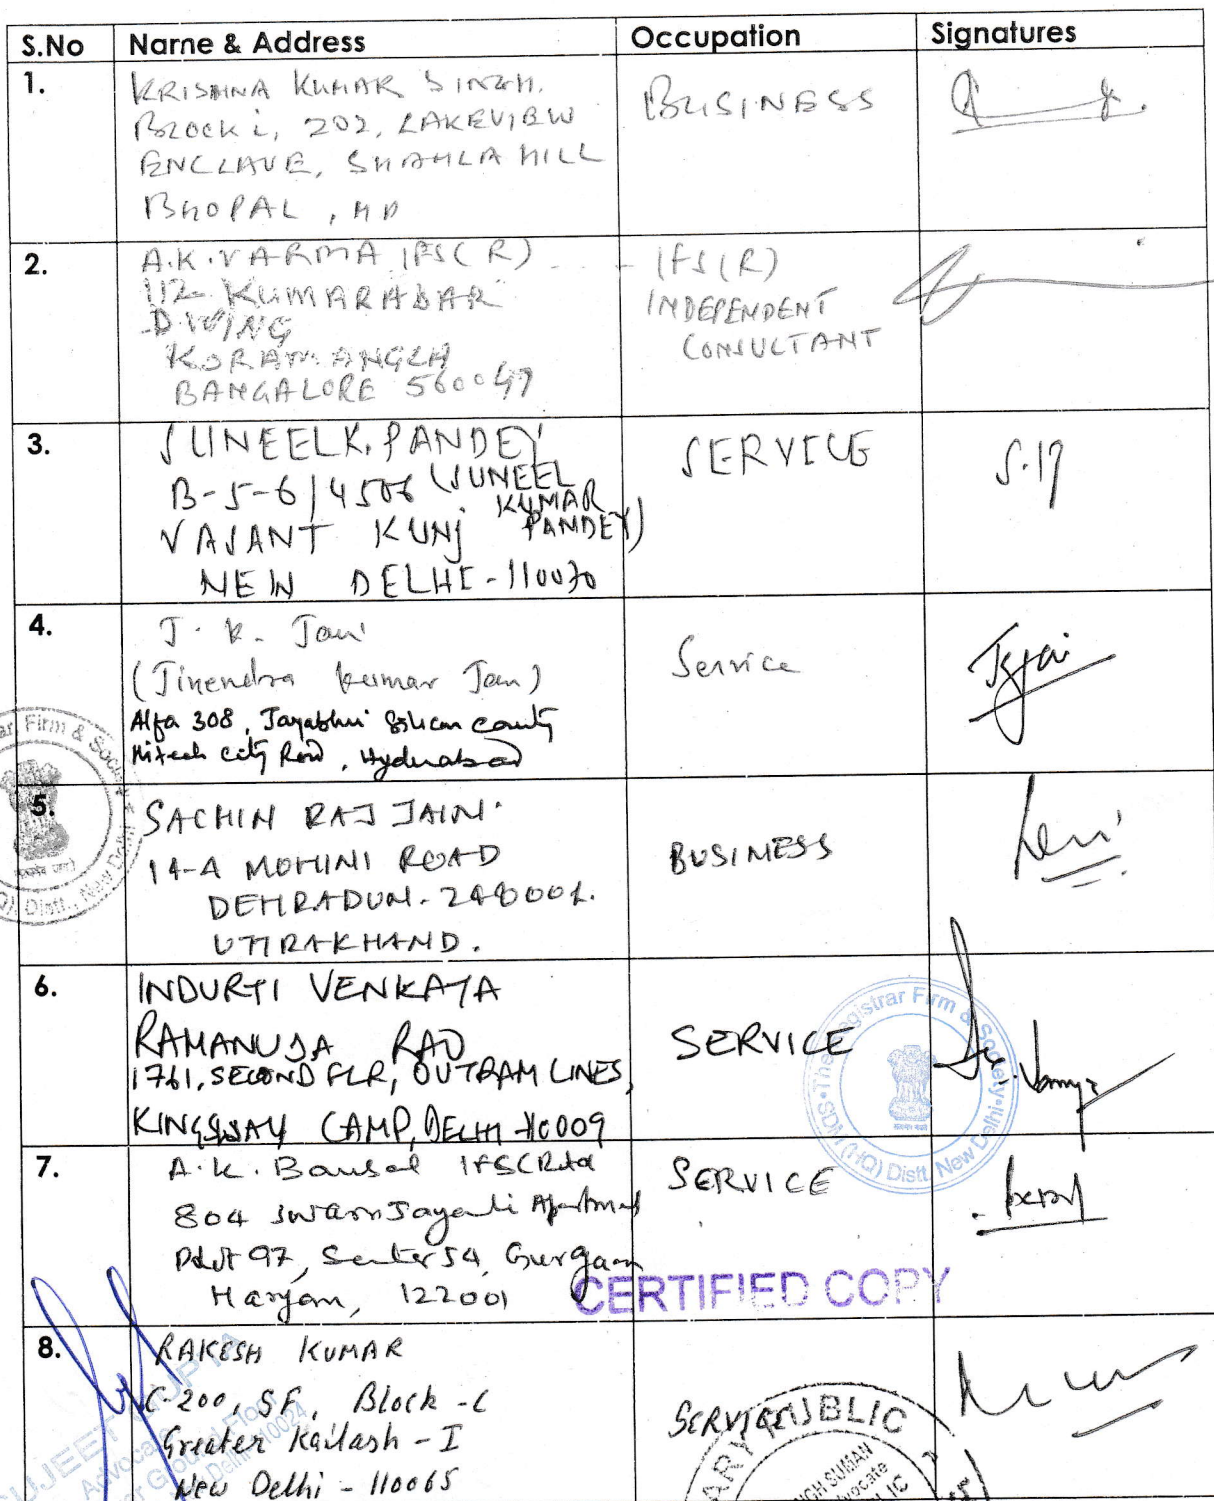 S.No Name & Address Occupation Signatures
1.
KRISHNA KUMAR SINGH.
BLOCK i, 202, LAKEVIEW
ENCLAVE, SHAHLA HILL
BHOPAL, MP
BUSINESS
2.
A.K. VARMA IFS(R)
112 KUMARADAR
D. WING
KORAMANGLA
BANGALORE 560047
IFS(R)
INDEPENDENT
CONSULTANT
3.
SUNEEL K. PANDEY
B-5-6/4506 (SUNEEL
KUMAR
VASANT KUNJ PANDEY)
NEW DELHI-110070
SERVICE
4.
J. K. Jain
(Jinendra Kumar Jain)
Alfa 308, Jayabhri Silicon County
Hitech City Road, Hyderabad
Service
5.
SACHIN RAJ JAIN.
14-A MOHINI ROAD
DEHRADUN. 248001.
UTTRAKHAND.
BUSINESS
6.
INDURTI VENKATA
RAMANUJA RAO
1761, SECOND FLR, OUTRAM LINES,
KINGSWAY CAMP, DELHI-110009
SERVICE
The Registrar Firm & Society
SDM (HQ) Distt. New Delhi
7.
A.K. Bansal IFS(Retd
804 Swarn Jayanti Apartment
Plot 97, Sector 54, Gurgaon
Haryana, 122001
SERVICE
CERTIFIED COPY
8.
RAKESH KUMAR
C-200, SF, Block-C
Greater Kailash-I
New Delhi-110065
SERVICE
Advocate
Ground Floor
Firm & Society
Distt., New Delhi
SUMAN
Advocate
PUBLIC